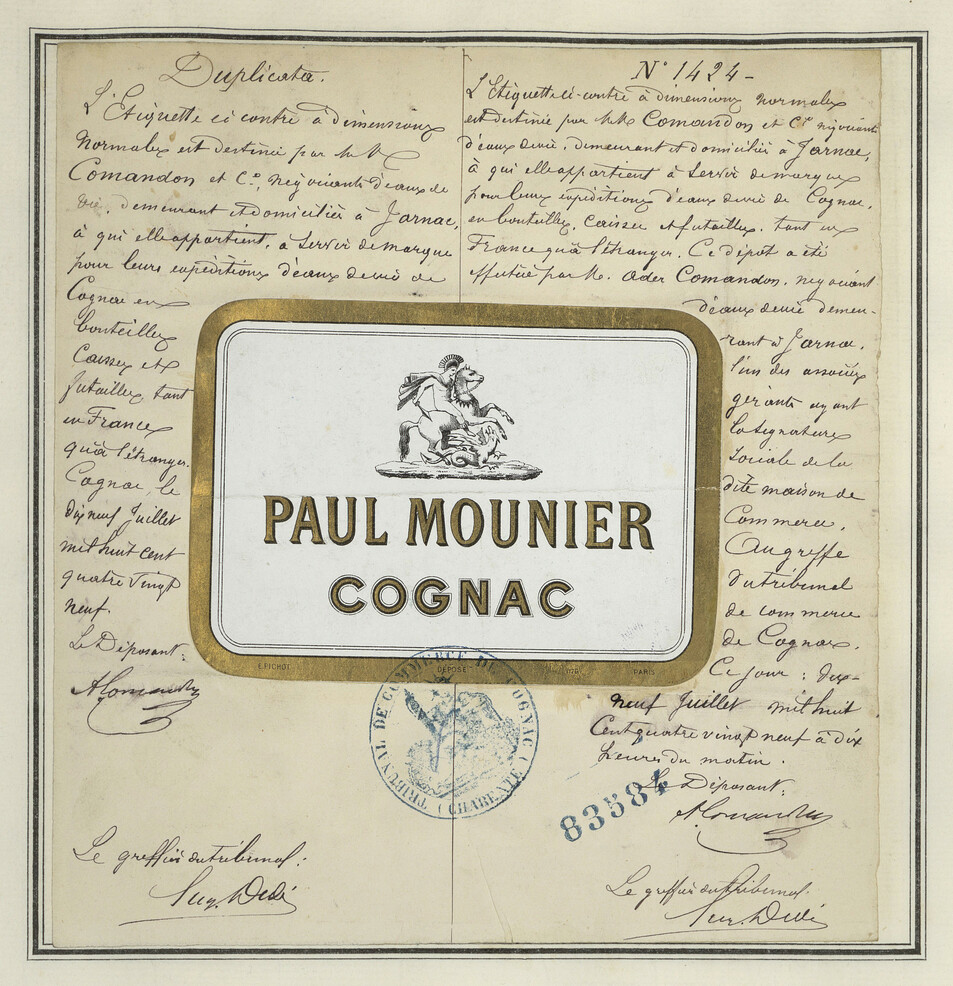 Duplicata.
L'Etiquette ci contre à dimensions
normales est destinée par MM
Comandon et Cie, négociants d'eaux de
vie, demeurant et domiciliés à Jarnac,
à qui elle appartient, à servir de marque
pour leurs expéditions d'eaux de vie de
Cognac en
bouteilles
Caisses et
futailles, tant
en France
qu'à l'étranger.
Cognac, le
dix neuf Juillet
mil huit cent
quatre vingt
neuf.
Le Déposant:
AComandon
Le greffier du tribunal:
N° 1424-
L'Etiquette ci-contre à dimensions normales
est destinée par MM Comandon et Cie négociants
d'eaux de vie, demeurant et domiciliés à Jarnac,
à qui elle appartient à servir de marque
pour leurs expéditions d'eaux de vie de Cognac,
en bouteilles, caisses et futailles, tant en
France qu'à l'étranger. Ce dépôt a été
effectué par M. Comandon, négociant
d'eaux de vie demeu-
rant à Jarnac,
l'un des associés
gérants ayant
la signature
sociale de la
dite maison de
Commerce,
Au greffe
du tribunal
de commerce
de Cognac,
Ce jour: dix-
neuf Juillet mil huit
Cent quatre vingt neuf à dix
heures du matin.
Le Déposant:
AComandon
Le greffier du tribunal.
PAUL MOUNIER
COGNAC
E.PICHOT
DÉPOSÉ
PARIS
TRIBUNAL DE COMMERCE DE COGNAC (CHARENTE)
83584